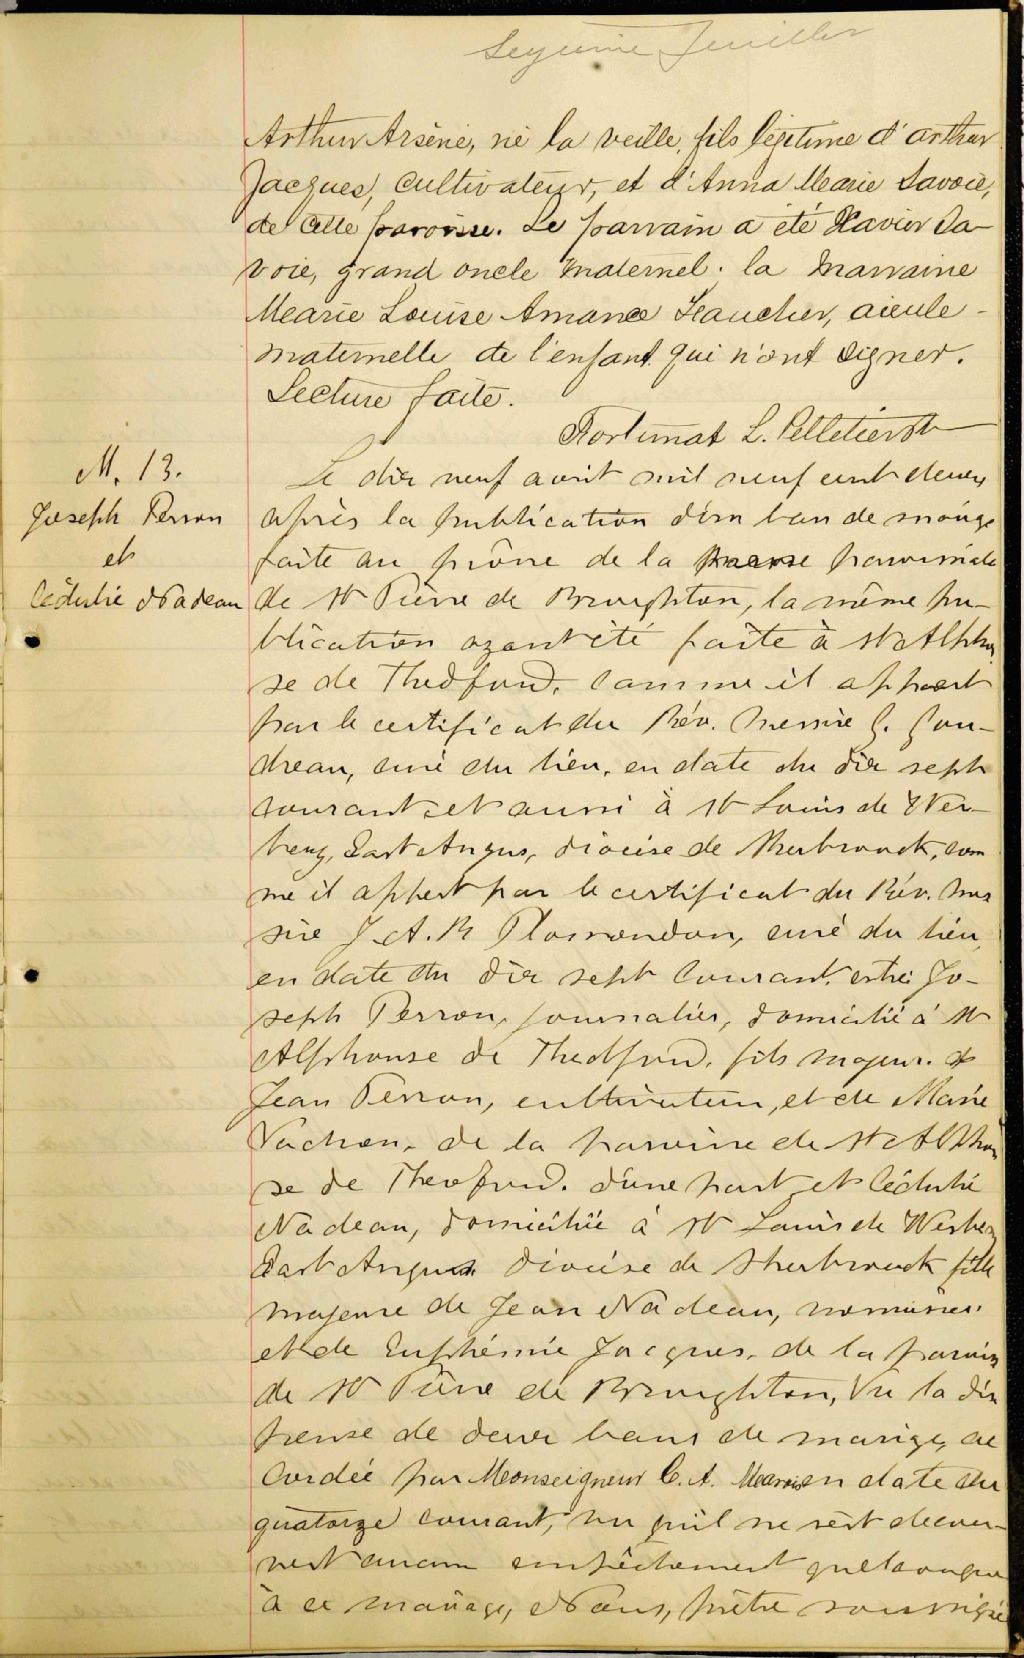 Arthur Arsène, né la veille, fils légitime d'Arthur
Jacques, cultivateur, et d'Anna Marie Savoie,
de cette paroisse. Le parrain a été Xavier Sa-
voie, grand oncle maternel. la marraine
Marie Louise Amance Faucher, aieule
maternelle de l'enfant qui n'ont signer.
Lecture faite.
Fortunat L. Pelletier
M. 13.
Joseph Perron
et
Cédulie Nadeau
Le dix neuf avril mil neuf cent deux
après la publication d'un ban de mariage
faite au prône de la messe paroissiale
de St Pierre de Broughton, la même pu-
blication ayant été faite à St Alphon
se de Thedford, comme il appert
par le certificat du Rév. Messire J. Gou-
dreau, curé du lieu, en date du dix sept
courant et aussi à St Louis de Wes-
bury, East Angus, diocèse de Sherbrook, com
me il appert par le certificat du Rév. Mes
sire J. A. R Plamondon, curé du lieu,
en date du dix sept courant, entre Jo-
seph Perron, journalier, domicilié à St
Alphonse de Thedford, fils majeur de
Jean Perron, cultivateur, et de Marie
Vachon, de la paroisse de St Alphon
se de Thedford, d'une part et Cédulie
Nadeau, domiciliée à St Louis de Westbury
East Angus diocèse de Sherbrook fille
majeure de Jean Nadeau,
et de Euphémie Jacques, de la paroisse
de St Pierre de Broughton, Vu la dis
pense de deux bans de mariage, ac
cordée par Monseigneur C. A. Marois en date du
quatorze courant, vu qu'il ne s'est décou-
vert aucun empêchement quelconque
à ce mariage, Nous, prêtre soussigné